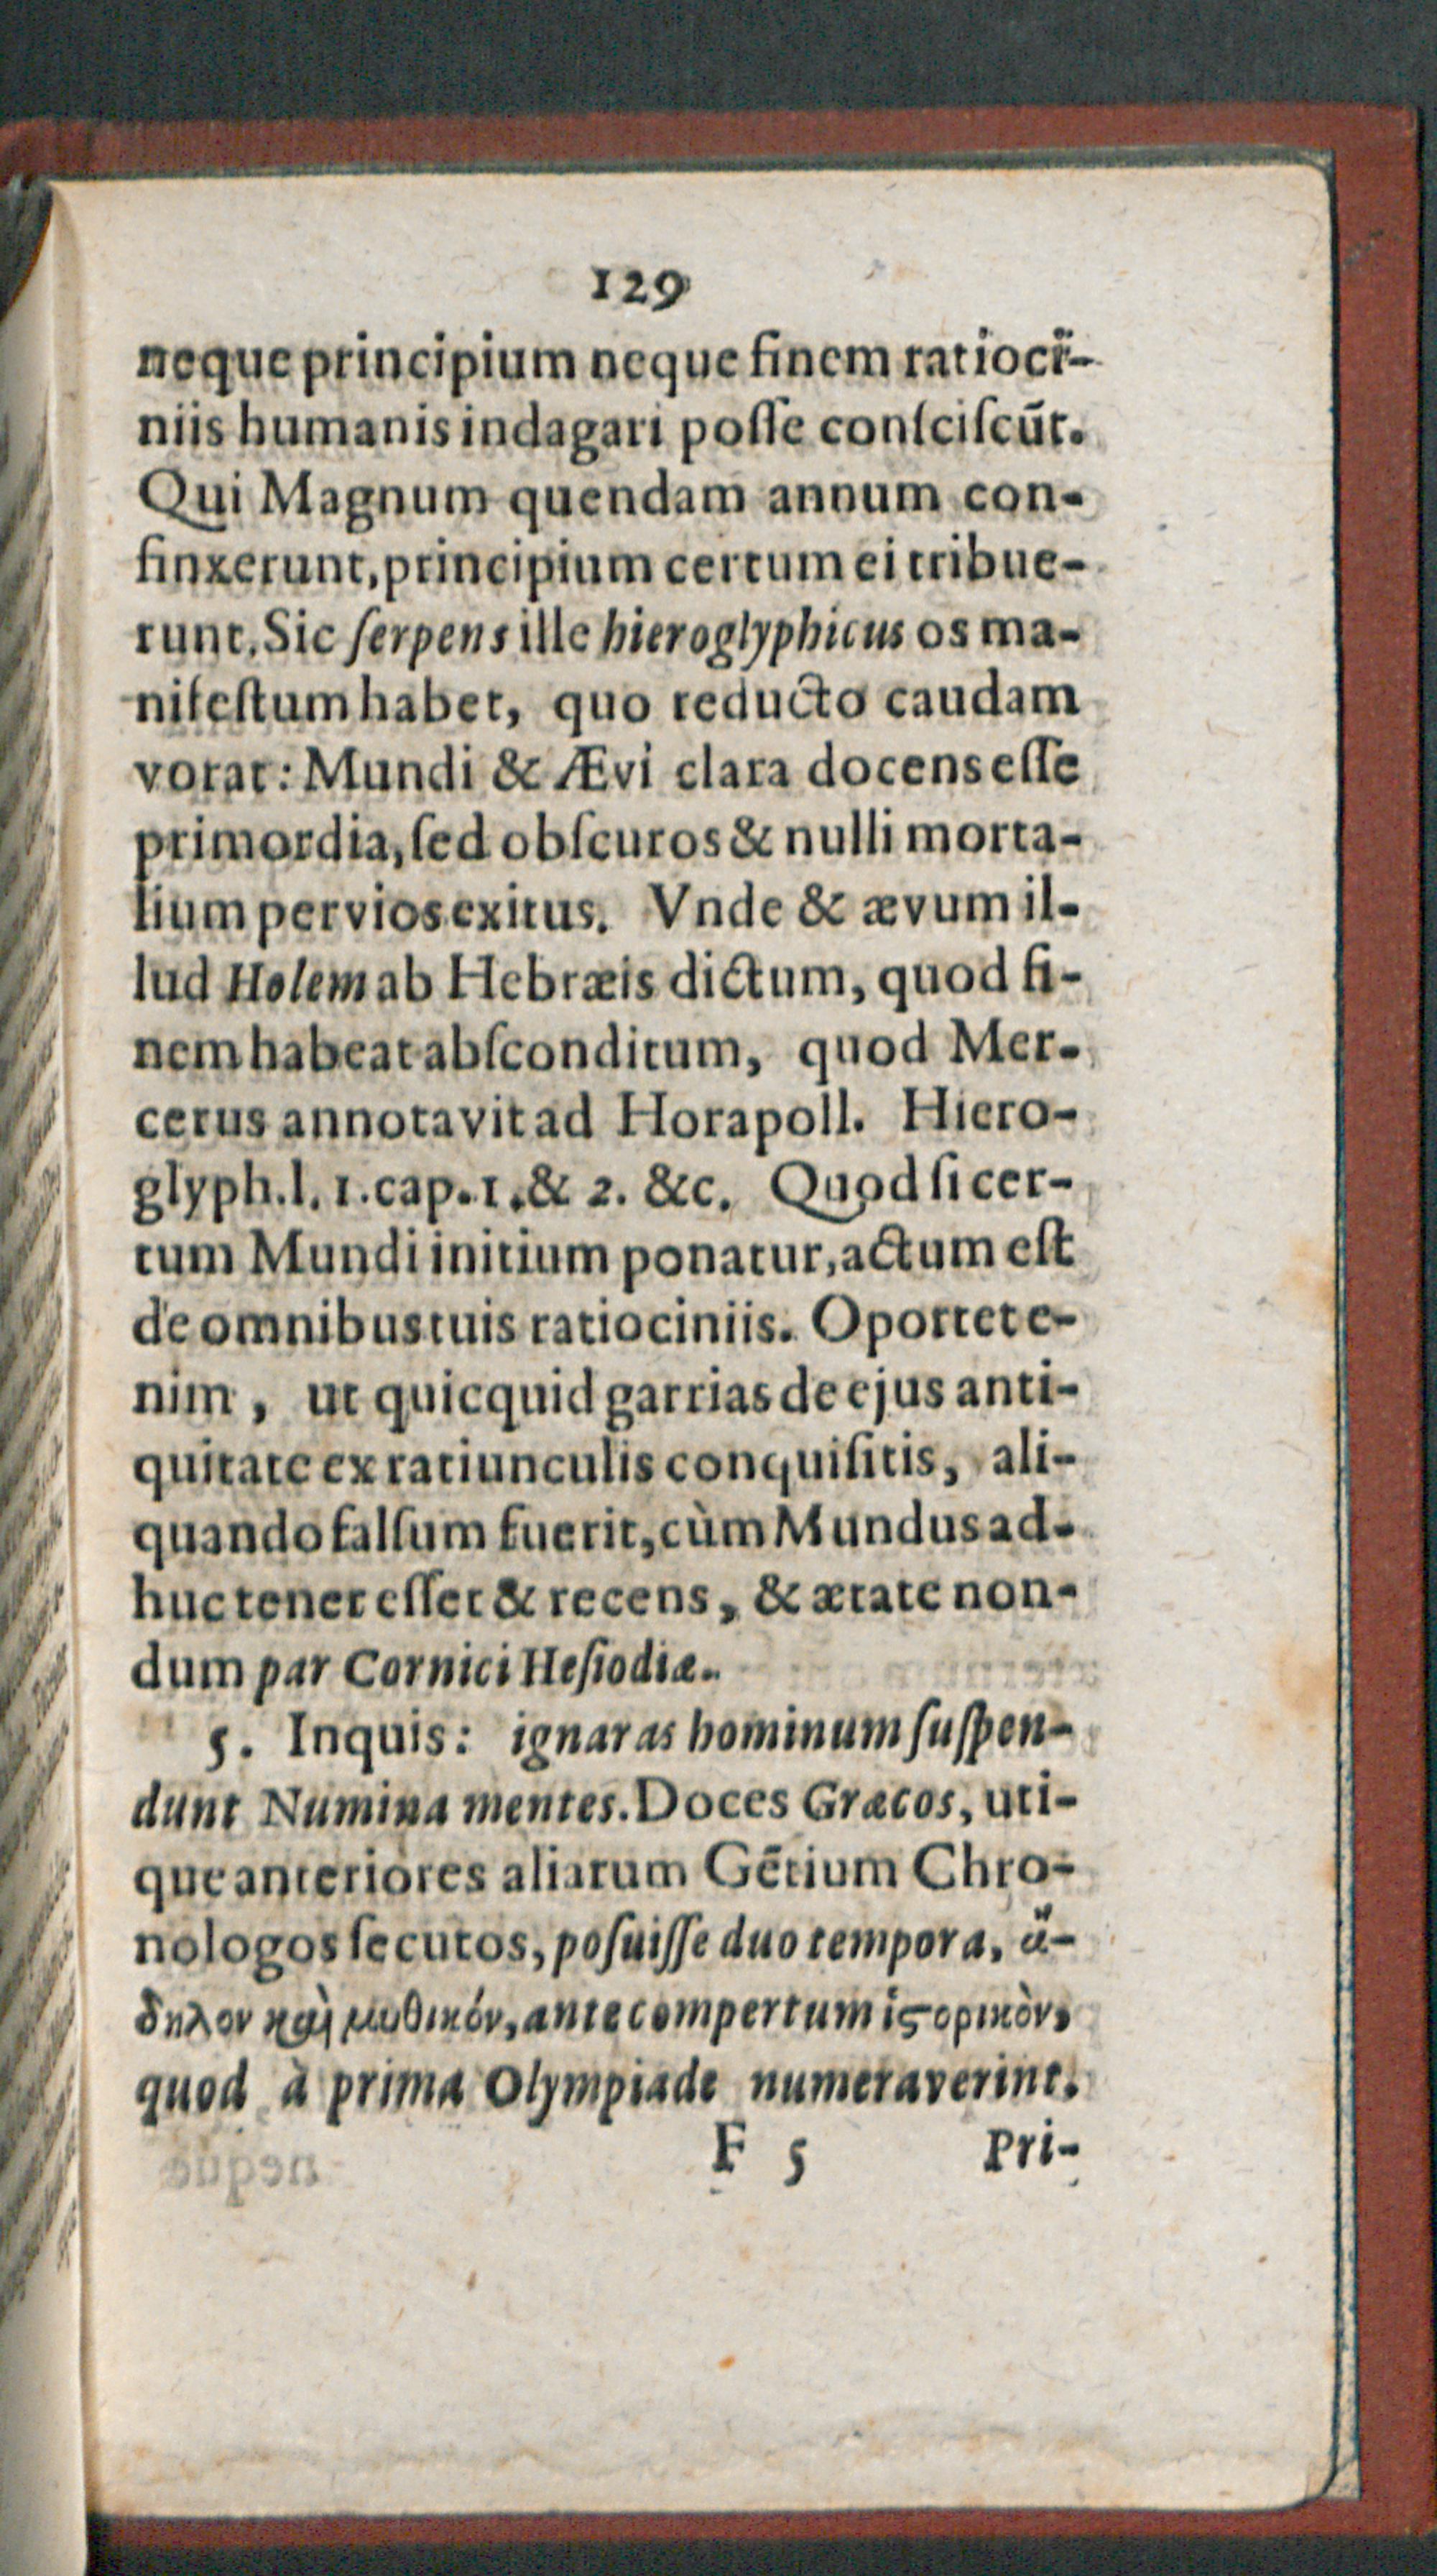 129
neque principium neque finem ratioci-
niis humanis indagari poſſe conſciſcūt.
Qui Magnum quendam annum con-
finxerunt, principium certum ei tribue-
runt. Sic ſerpens ille hieroglyphicus os ma-
nifeſtum habet, quo reducto caudam
vorat: Mundi & Ævi clara docens eſſe
primordia, ſed obſcuros & nulli morta-
lium pervios exitus. Vnde & ævum il-
lud Holem ab Hebræis dictum, quod fi-
nem habeat abſconditum, quod Mer-
cerus annotavit ad Horapoll. Hiero-
glyph. l. 1. cap. 1. & 2. &c. Quod ſi cer-
tum Mundi initium ponatur, actum eſt
de omnibus tuis ratiociniis. Oportet e-
nim, ut quicquid garrias de ejus anti-
quitate ex ratiunculis conquiſitis, ali-
quando falſum fuerit, cùm Mundus ad-
huc tener eſſet & recens, & ætate non-
dum par Cornici Heſiodiæ.
5. Inquis: ignaras hominum ſuſpen-
dunt Numina mentes. Doces Græcos, uti-
que anteriores aliarum Gētium Chro-
nologos ſecutos, poſuiſſe duo tempora, ἄ-
δηλον καὶ μυθικόν, ante compertum ἱϛορικὸν,
quod à prima Olympiade numeraverint.
F 5 Pri-